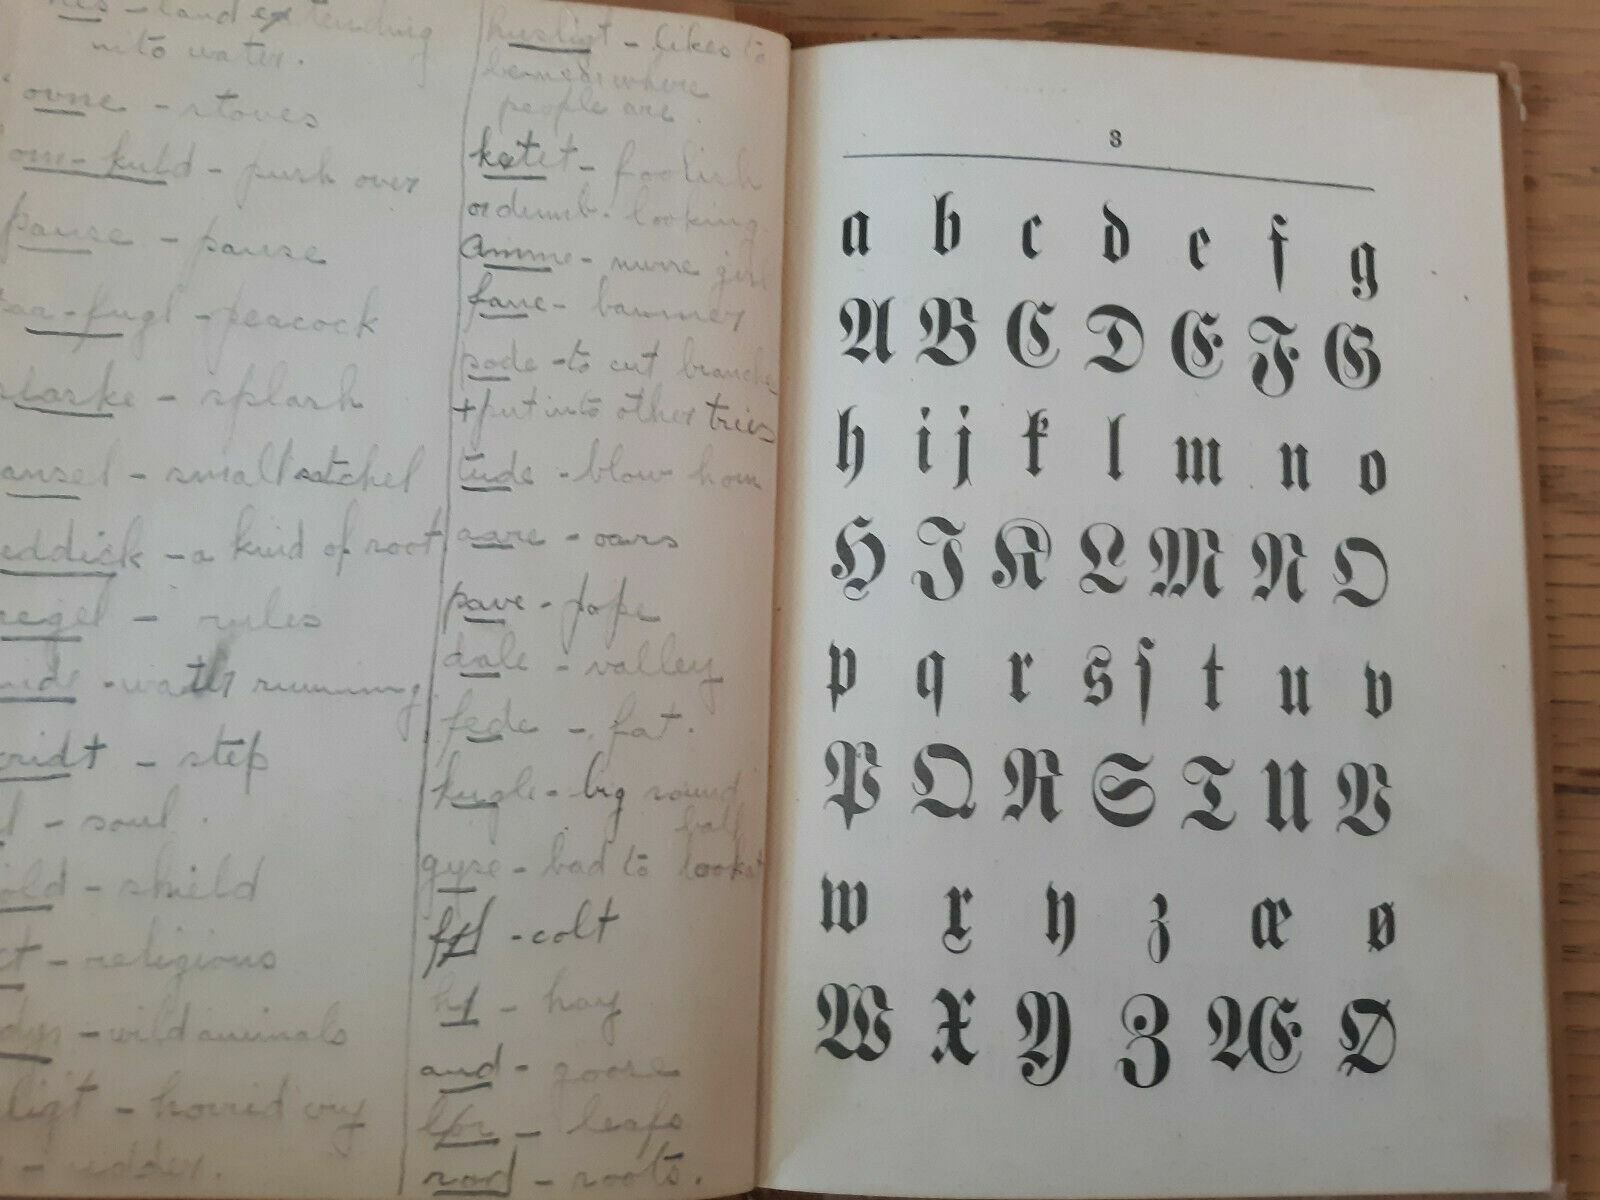 nes - land extending
into water.
ovne - stoves
om-kuld - push over
pause - pause
paa-fugl - peacock
plaske - splash
ransel - small satchel
reddick - a kind of root
regel - rules
- water running
skridt - step
- soul.
skold - shield
- religious
- wild animals
- horrid cry
- udder.
husligt - likes to
be where
people are.
ketet - foolish
or dumb-looking
Amme - nurse girl
fane - banner
pode - to cut branches
+ put into other tries
tude - blow horn
aare - oars
pave - pope
dale - valley
fede - fat.
kugle - big round
ball
gyse - bad to look at
føl - colt
hø - hay
and - goose
løv - leafs
rod - roots.
3
a b c d e f g
A B C D E F G
h i j k l m n o
H I K L M N O
p q r s ſ t u v
P Q R S T U V
w x y z æ ø
W X Y Z Æ Ø